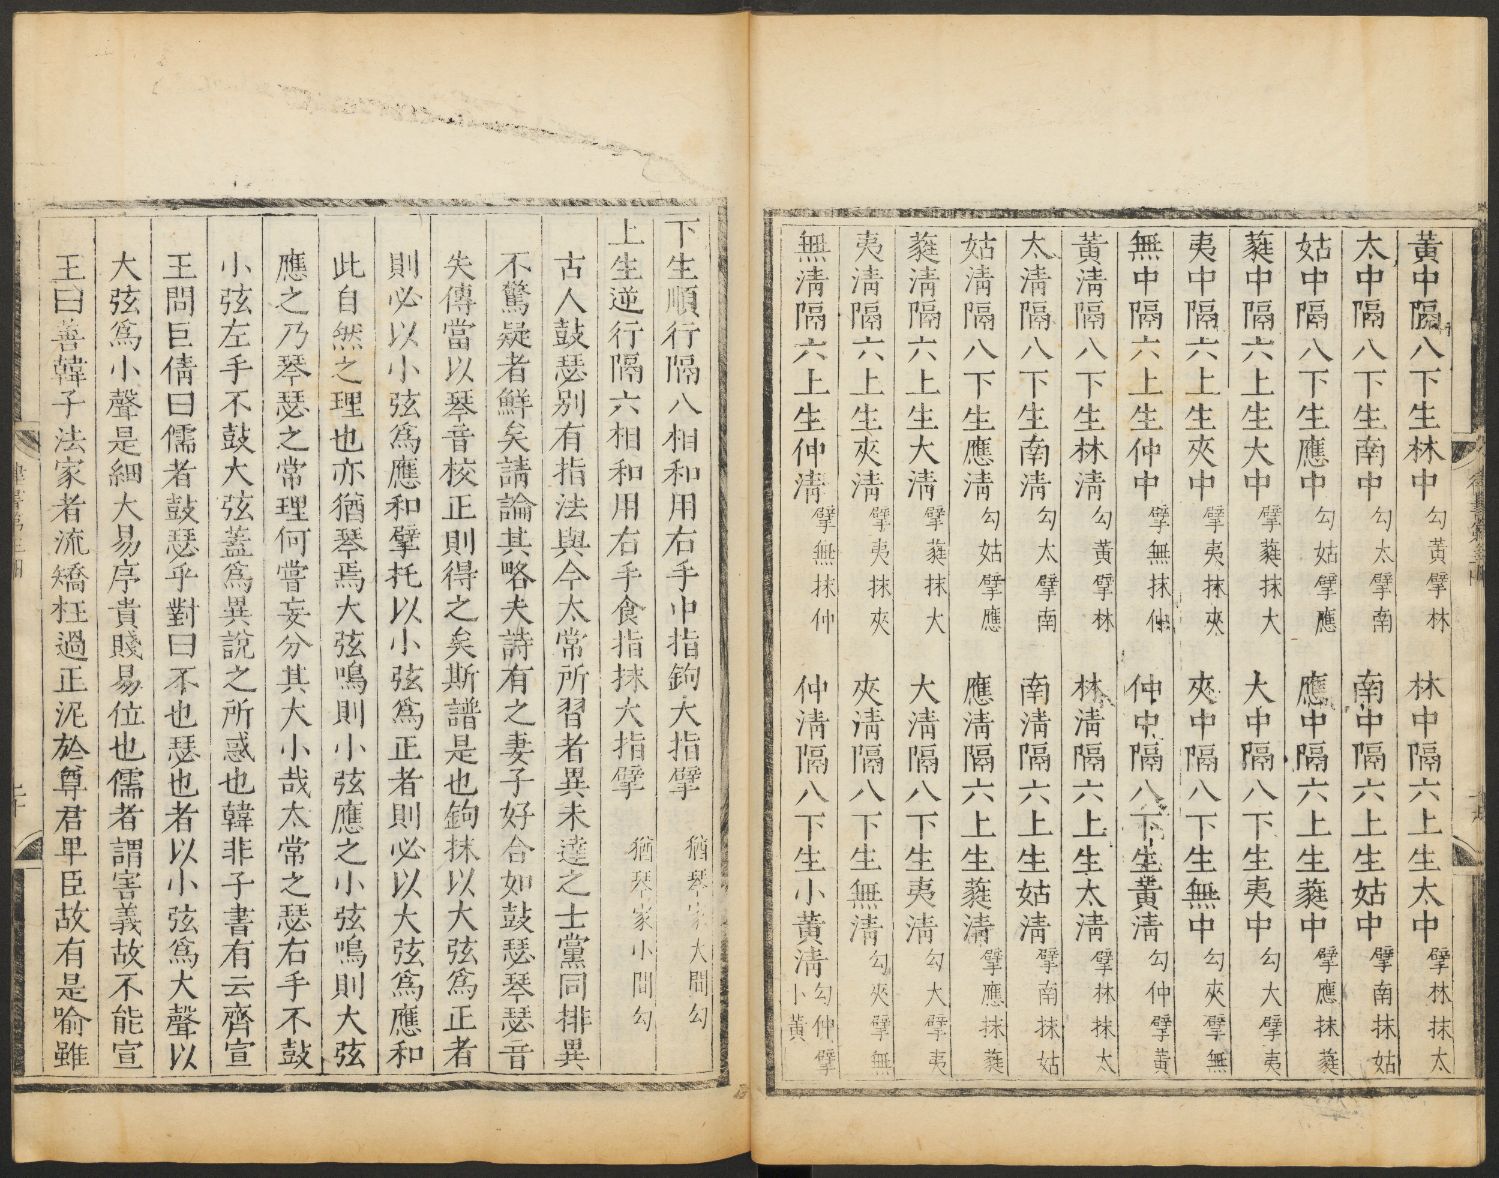 黃中隔八下生林中勾黃擘林　林中隔六上生太中擘林抹太
太中隔八下生南中勾太擘南　南中隔六上生姑中擘南抹姑
姑中隔八下生應中勾姑擘應　應中隔六上生蕤中擘應抹蕤
蕤中隔六上生大中擘蕤抹大　大中隔八下生夷中勾大擘夷
夷中隔六上生夾中擘夷抹夾　夾中隔八下生無中勾夾擘無
無中隔六上生仲中擘無抹仲　仲中隔八下生黃清勾仲擘黃
黃清隔八下生林清勾黃擘林　林清隔六上生太清擘林抹太
太清隔八下生南清勾太擘南　南清隔六上生姑清擘南抹姑
姑清隔八下生應清勾姑擘應　應清隔六上生蕤清擘應抹蕤
蕤清隔六上生大清擘蕤抹大　大清隔八下生夷清勾大擘夷
夷清隔六上生夾清擘夷抹夾　夾清隔八下生無清勾夾擘無
無清隔六上生仲清擘無抹仲　仲清隔八下生小黃清勾仲擘小黃
下生順行隔八相和用右手中指鉤大指擘猶琴家大間勾
上生逆行隔六相和用右手食指抹大指擘猶琴家小間勾
古人鼓瑟別有指法與今太常所習者異未達之士黨同排異
不驚疑者鮮矣請論其略夫詩有之妻子好合如鼓瑟琴瑟音
失傳當以琴音校正則得之矣斯譜是也鉤抹以大弦爲正者
則必以小弦爲應和擘托以小弦爲正者則必以大弦爲應和
此自然之理也亦猶琴焉大弦鳴則小弦應之小弦鳴則大弦
應之乃琴瑟之常理何嘗妄分其大小哉太常之瑟右手不鼓
小弦左手不鼓大弦蓋爲異說之所惑也韓非子書有云齊宣
王問匡倩曰儒者鼓瑟乎對曰不也瑟也者以小弦爲大聲以
大弦爲小聲是細大易序貴賤易位也儒者謂害義故不能宣
王曰善韓子法家者流矯枉過正泥於尊君卑臣故有是喻雖